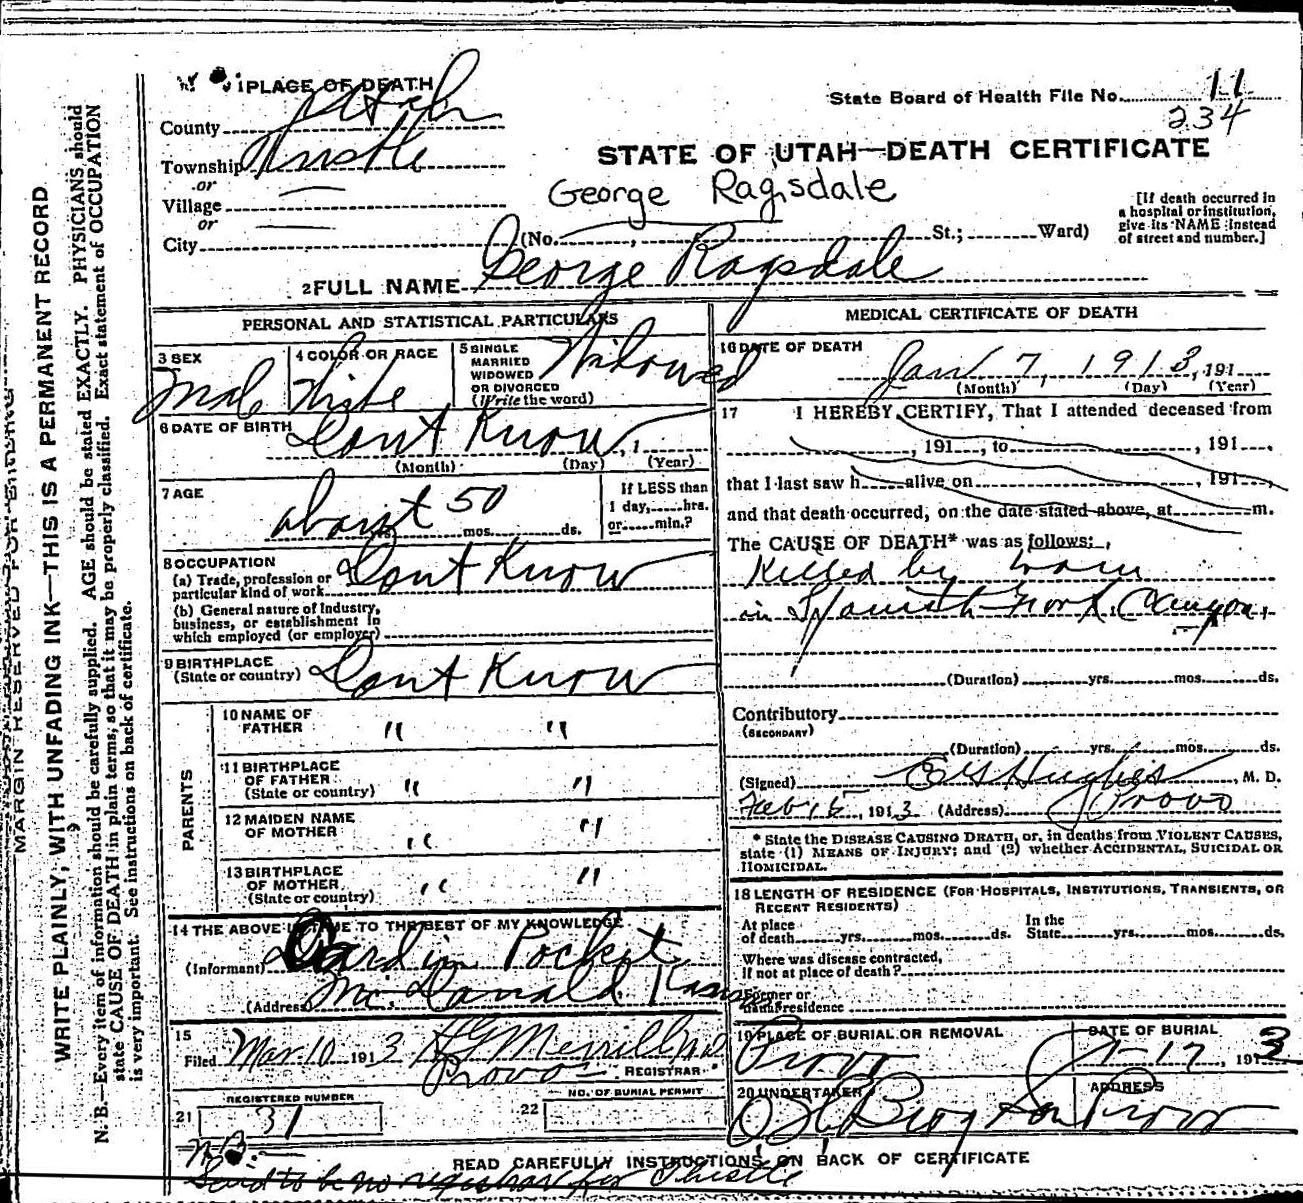 1 PLACE OF DEATH
County Utah
Township Thistle
or
Village
or
City
State Board of Health File No. 11
234
STATE OF UTAH—DEATH CERTIFICATE
George Ragsdale
(No. , St.; Ward)
[If death occurred in
a hospital or institution,
give its NAME instead
of street and number.]
2 FULL NAME George Ragsdale
PERSONAL AND STATISTICAL PARTICULARS
3 SEX
Male
4 COLOR OR RACE
White
5 SINGLE
MARRIED
WIDOWED
OR DIVORCED
(Write the word)
Widowed
6 DATE OF BIRTH Dont Know, 1
(Month) (Day) (Year)
7 AGE
about 50
mos. ds.
If LESS than
1 day, hrs.
or min.?
8 OCCUPATION
(a) Trade, profession or
particular kind of work Dont Know
(b) General nature of Industry,
business, or establishment in
which employed (or employer)
9 BIRTHPLACE
(State or country) Dont Know
PARENTS
10 NAME OF
FATHER " "
11 BIRTHPLACE
OF FATHER
(State or country) " "
12 MAIDEN NAME
OF MOTHER " "
13 BIRTHPLACE
OF MOTHER
(State or country) " "
14 THE ABOVE IS TRUE TO THE BEST OF MY KNOWLEDGE
(Informant) Card in Pocket
(Address) Mc Donald Kansas
15
Filed Mar. 10 1913 H G Merrill M D
REGISTRAR
Provo
REGISTERED NUMBER
21 31
NO. OF BURIAL PERMIT
22
MEDICAL CERTIFICATE OF DEATH
16 DATE OF DEATH
Jan 7, 1913, 191
(Month) (Day) (Year)
17 I HEREBY CERTIFY, That I attended deceased from
, 191 , to , 191 ,
that I last saw h alive on , 191 ,
and that death occurred, on the date stated above, at m.
The CAUSE OF DEATH* was as follows:
Killed by train
in Spanish Fork Canyon,
(Duration) yrs. mos. ds.
Contributory
(SECONDARY)
(Duration) yrs. mos. ds.
(Signed) Hughes, M. D.
Feb 15, 1913 (Address) Provo
* State the DISEASE CAUSING DEATH, or, in deaths from VIOLENT CAUSES,
state (1) MEANS OF INJURY; and (2) whether ACCIDENTAL, SUICIDAL OR
HOMICIDAL.
18 LENGTH OF RESIDENCE (FOR HOSPITALS, INSTITUTIONS, TRANSIENTS, OR
RECENT RESIDENTS)
At place
of death yrs. mos. ds.
In the
State yrs. mos. ds.
Where was disease contracted,
if not at place of death?
Former or
usual residence
19 PLACE OF BURIAL OR REMOVAL
Provo
DATE OF BURIAL
1-17, 1913
20 UNDERTAKER
Berg Son
ADDRESS
Provo
N.B.
Said to be no registrar for Thistle
READ CAREFULLY INSTRUCTIONS ON BACK OF CERTIFICATE
MARGIN RESERVED FOR BINDING
WRITE PLAINLY, WITH UNFADING INK—THIS IS A PERMANENT RECORD
N. B.—Every item of information should be carefully supplied. AGE should be stated EXACTLY. PHYSICIANS should
state CAUSE OF DEATH in plain terms, so that it may be properly classified. Exact statement of OCCUPATION
is very important. See instructions on back of certificate.